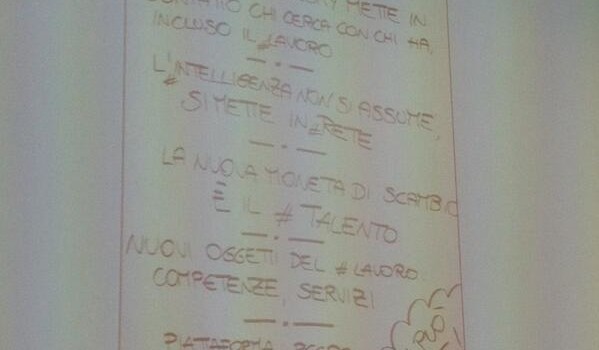 METTE IN
CHI CERCA CON CHI HA,
INCLUSO IL #LAVORO
— . —
L'#INTELLIGENZA NON SI ASSUME,
SI METTE IN #RETE
— . —
LA NUOVA MONETA DI SCAMBIO
È IL # TALENTO
— . —
NUOVI OGGETTI DEL # LAVORO
COMPETENZE, SERVIZI
— . —